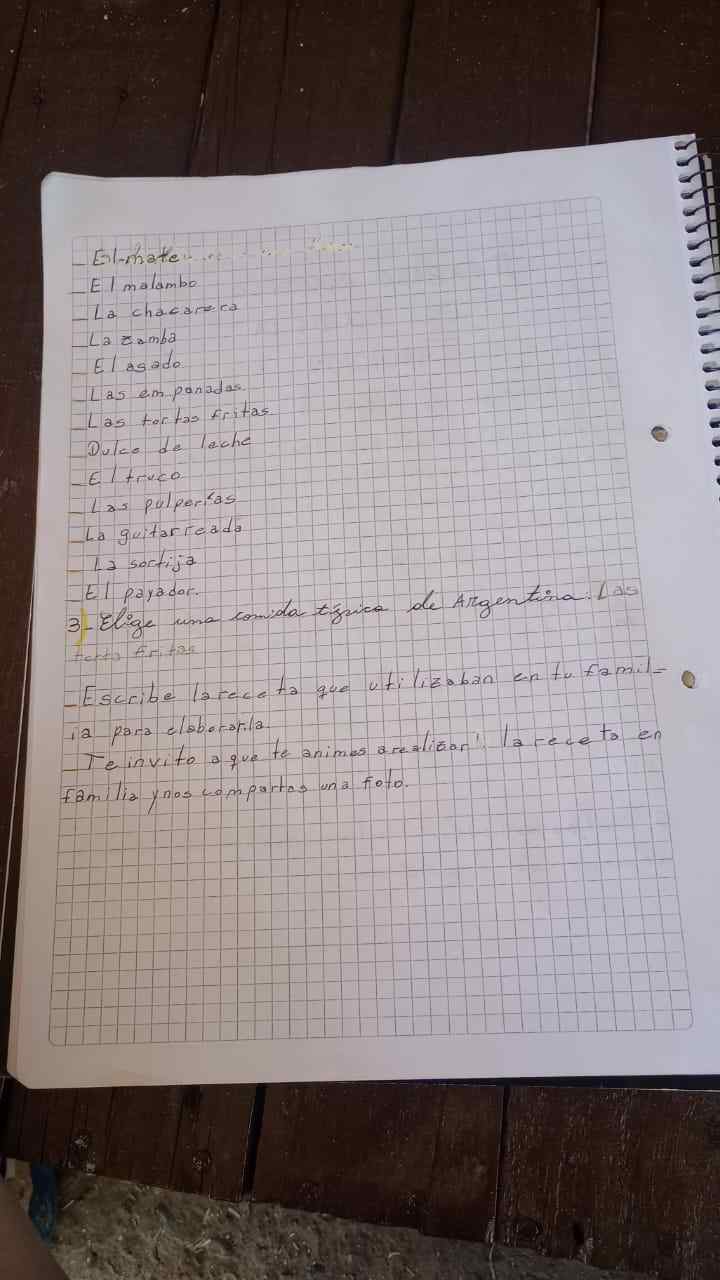 _ El mate
_ El malambo
_ La chacarera
_ La zamba
_ El asado
_ Las empanadas
_ Las tortas fritas
_ Dulce de leche
_ El truco
_ Las pulperías
_ La guitarreada
_ La sortija
_ El payador.
3)_ Elige una comida típica de Argentina. Las
torta fritas
_ Escribe la receta que utilizaban en tu famil-
ia para elaborarla.
_ Te invito a que te animes a realizar la receta en
familia y nos compartas una foto.